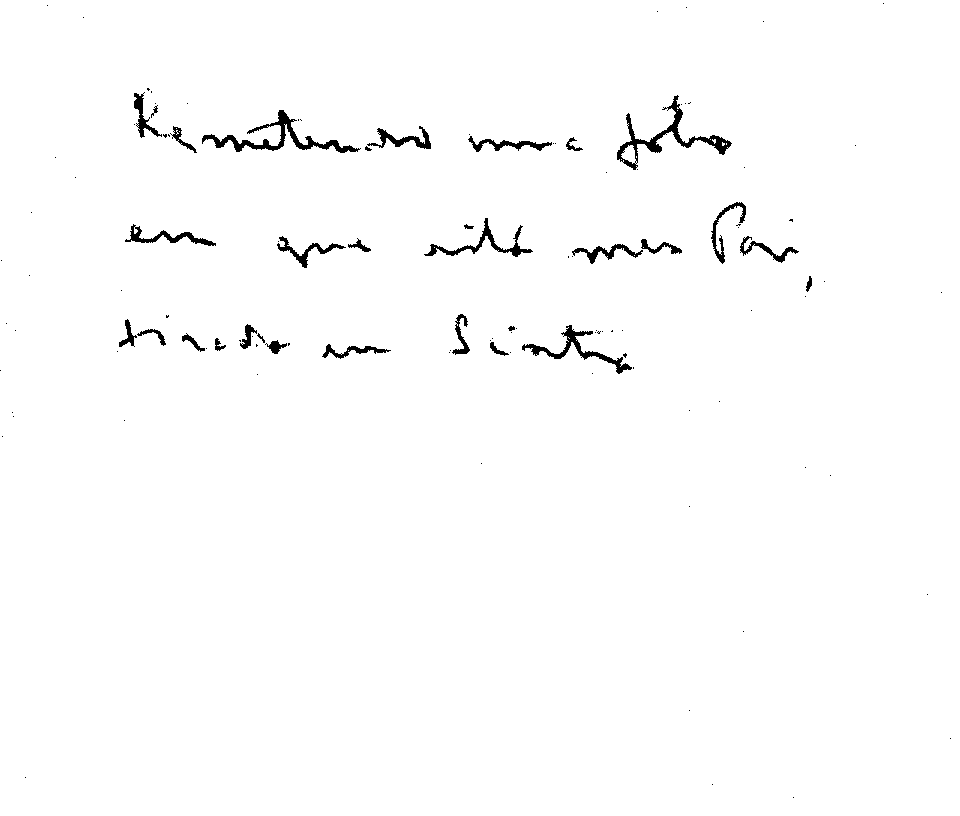 Remetendo uma foto
em que está meu Pai,
tirada em Sintra